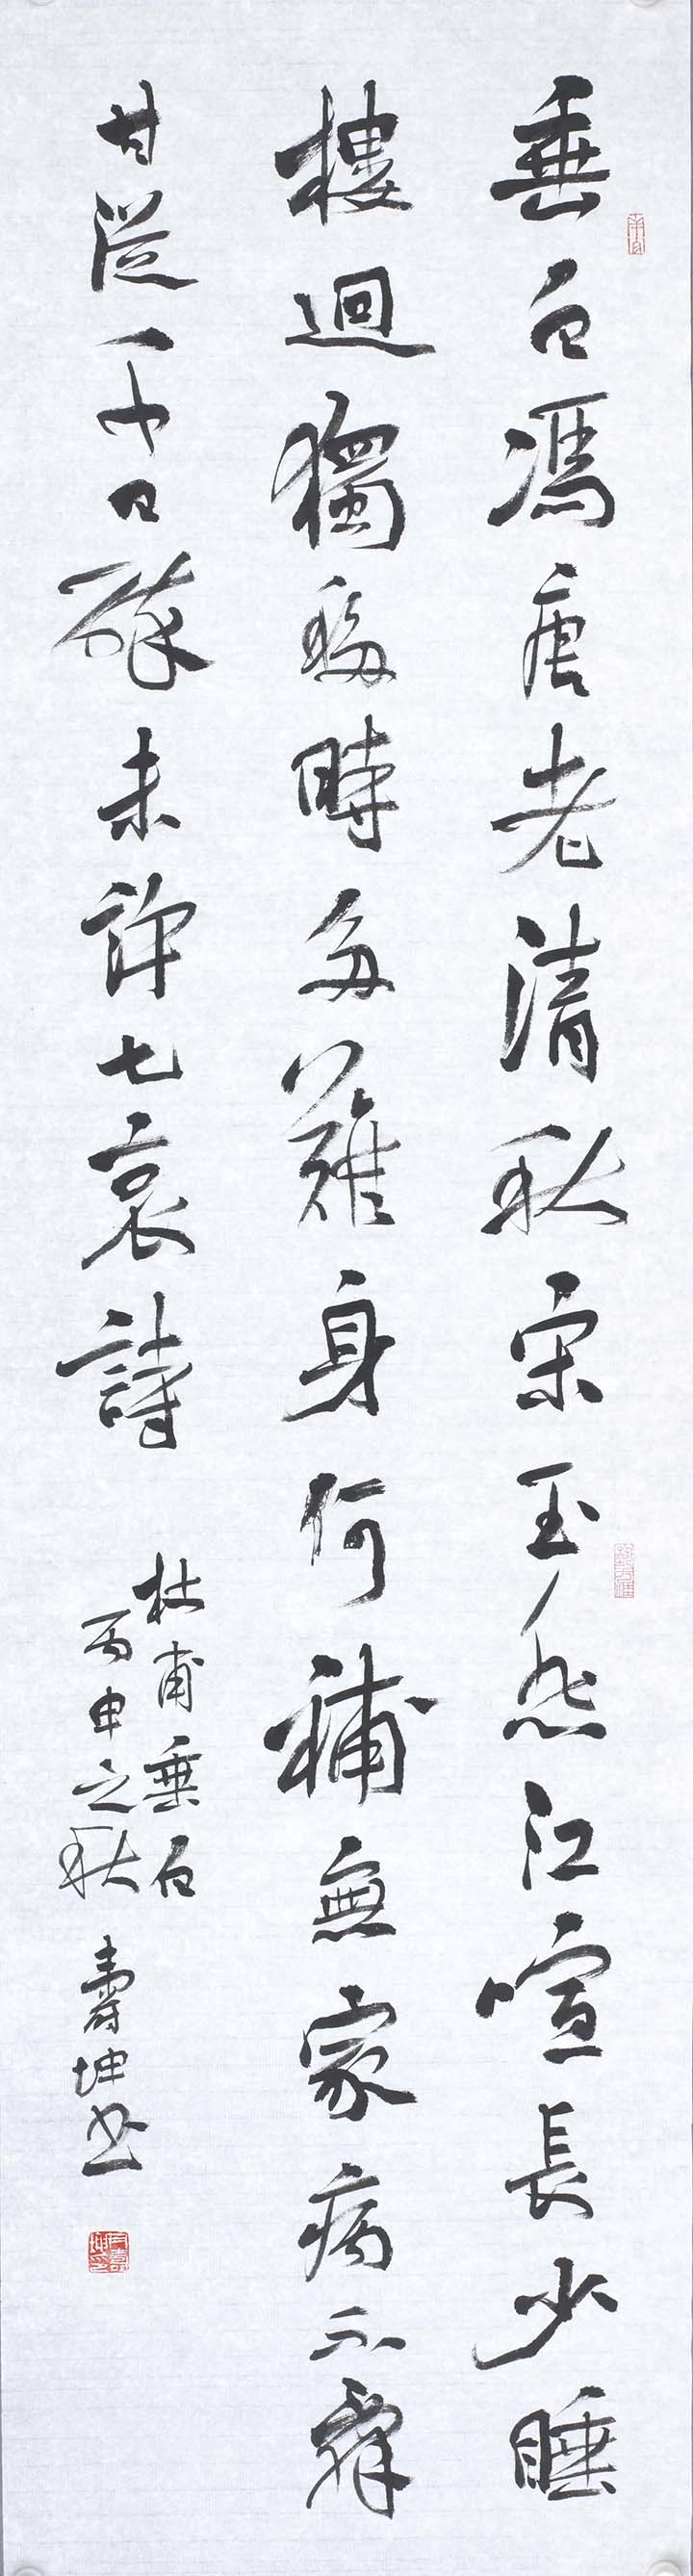 垂白馮唐老清秋宋玉悲江喧長少睡
樓迥獨移時多難身何補無家病不辭
甘從千日醉未許七哀詩
杜甫垂白
丙申之秋 壽坤書